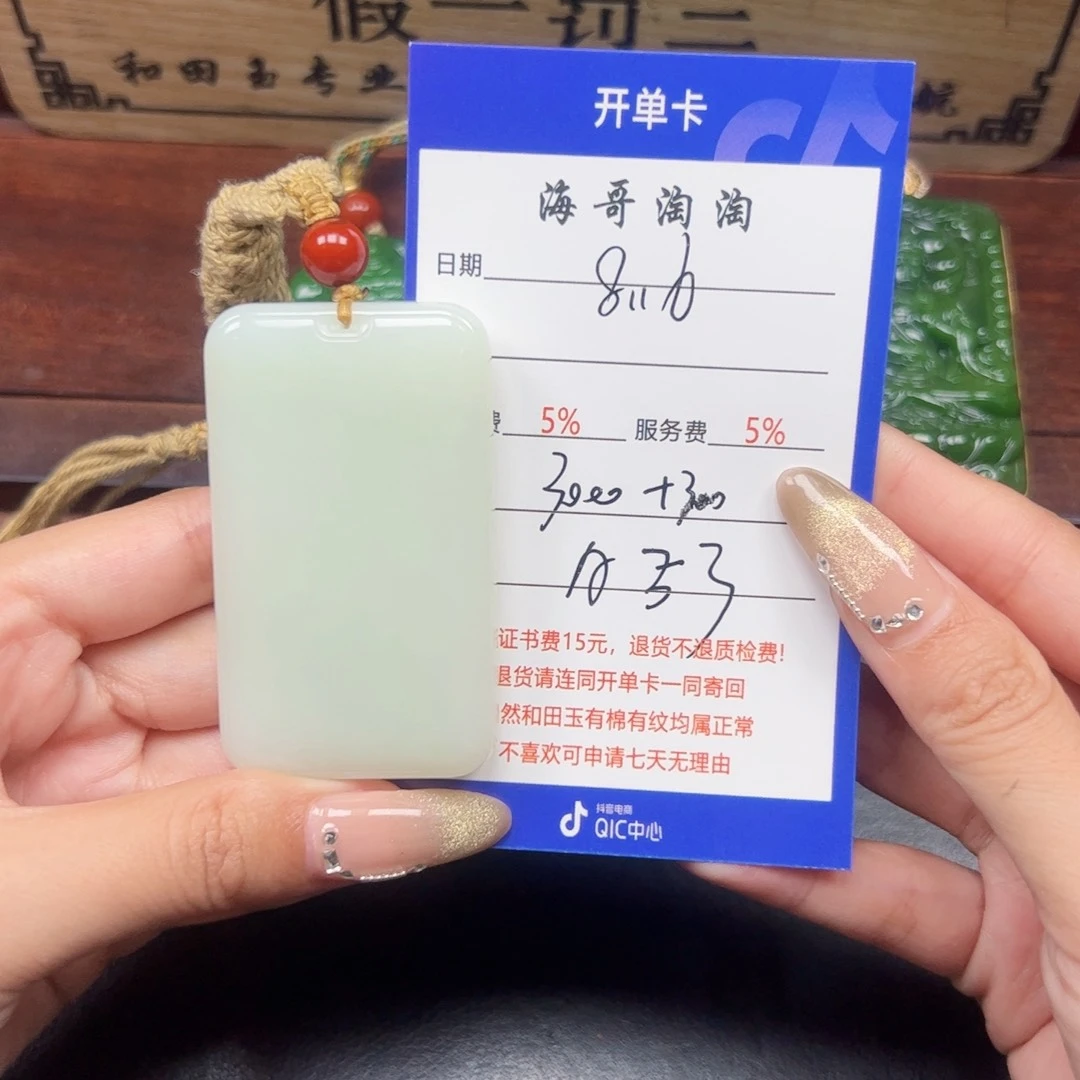 假一罚三
和田玉专业
航
开单卡
海哥淘淘
日期
费 5% 服务费 5%
3000 +300
证书费15元，退货不退质检费!
退货请连同开单卡一同寄回
然和田玉有棉有纹均属正常
不喜欢可申请七天无理由
抖音电商
QIC中心